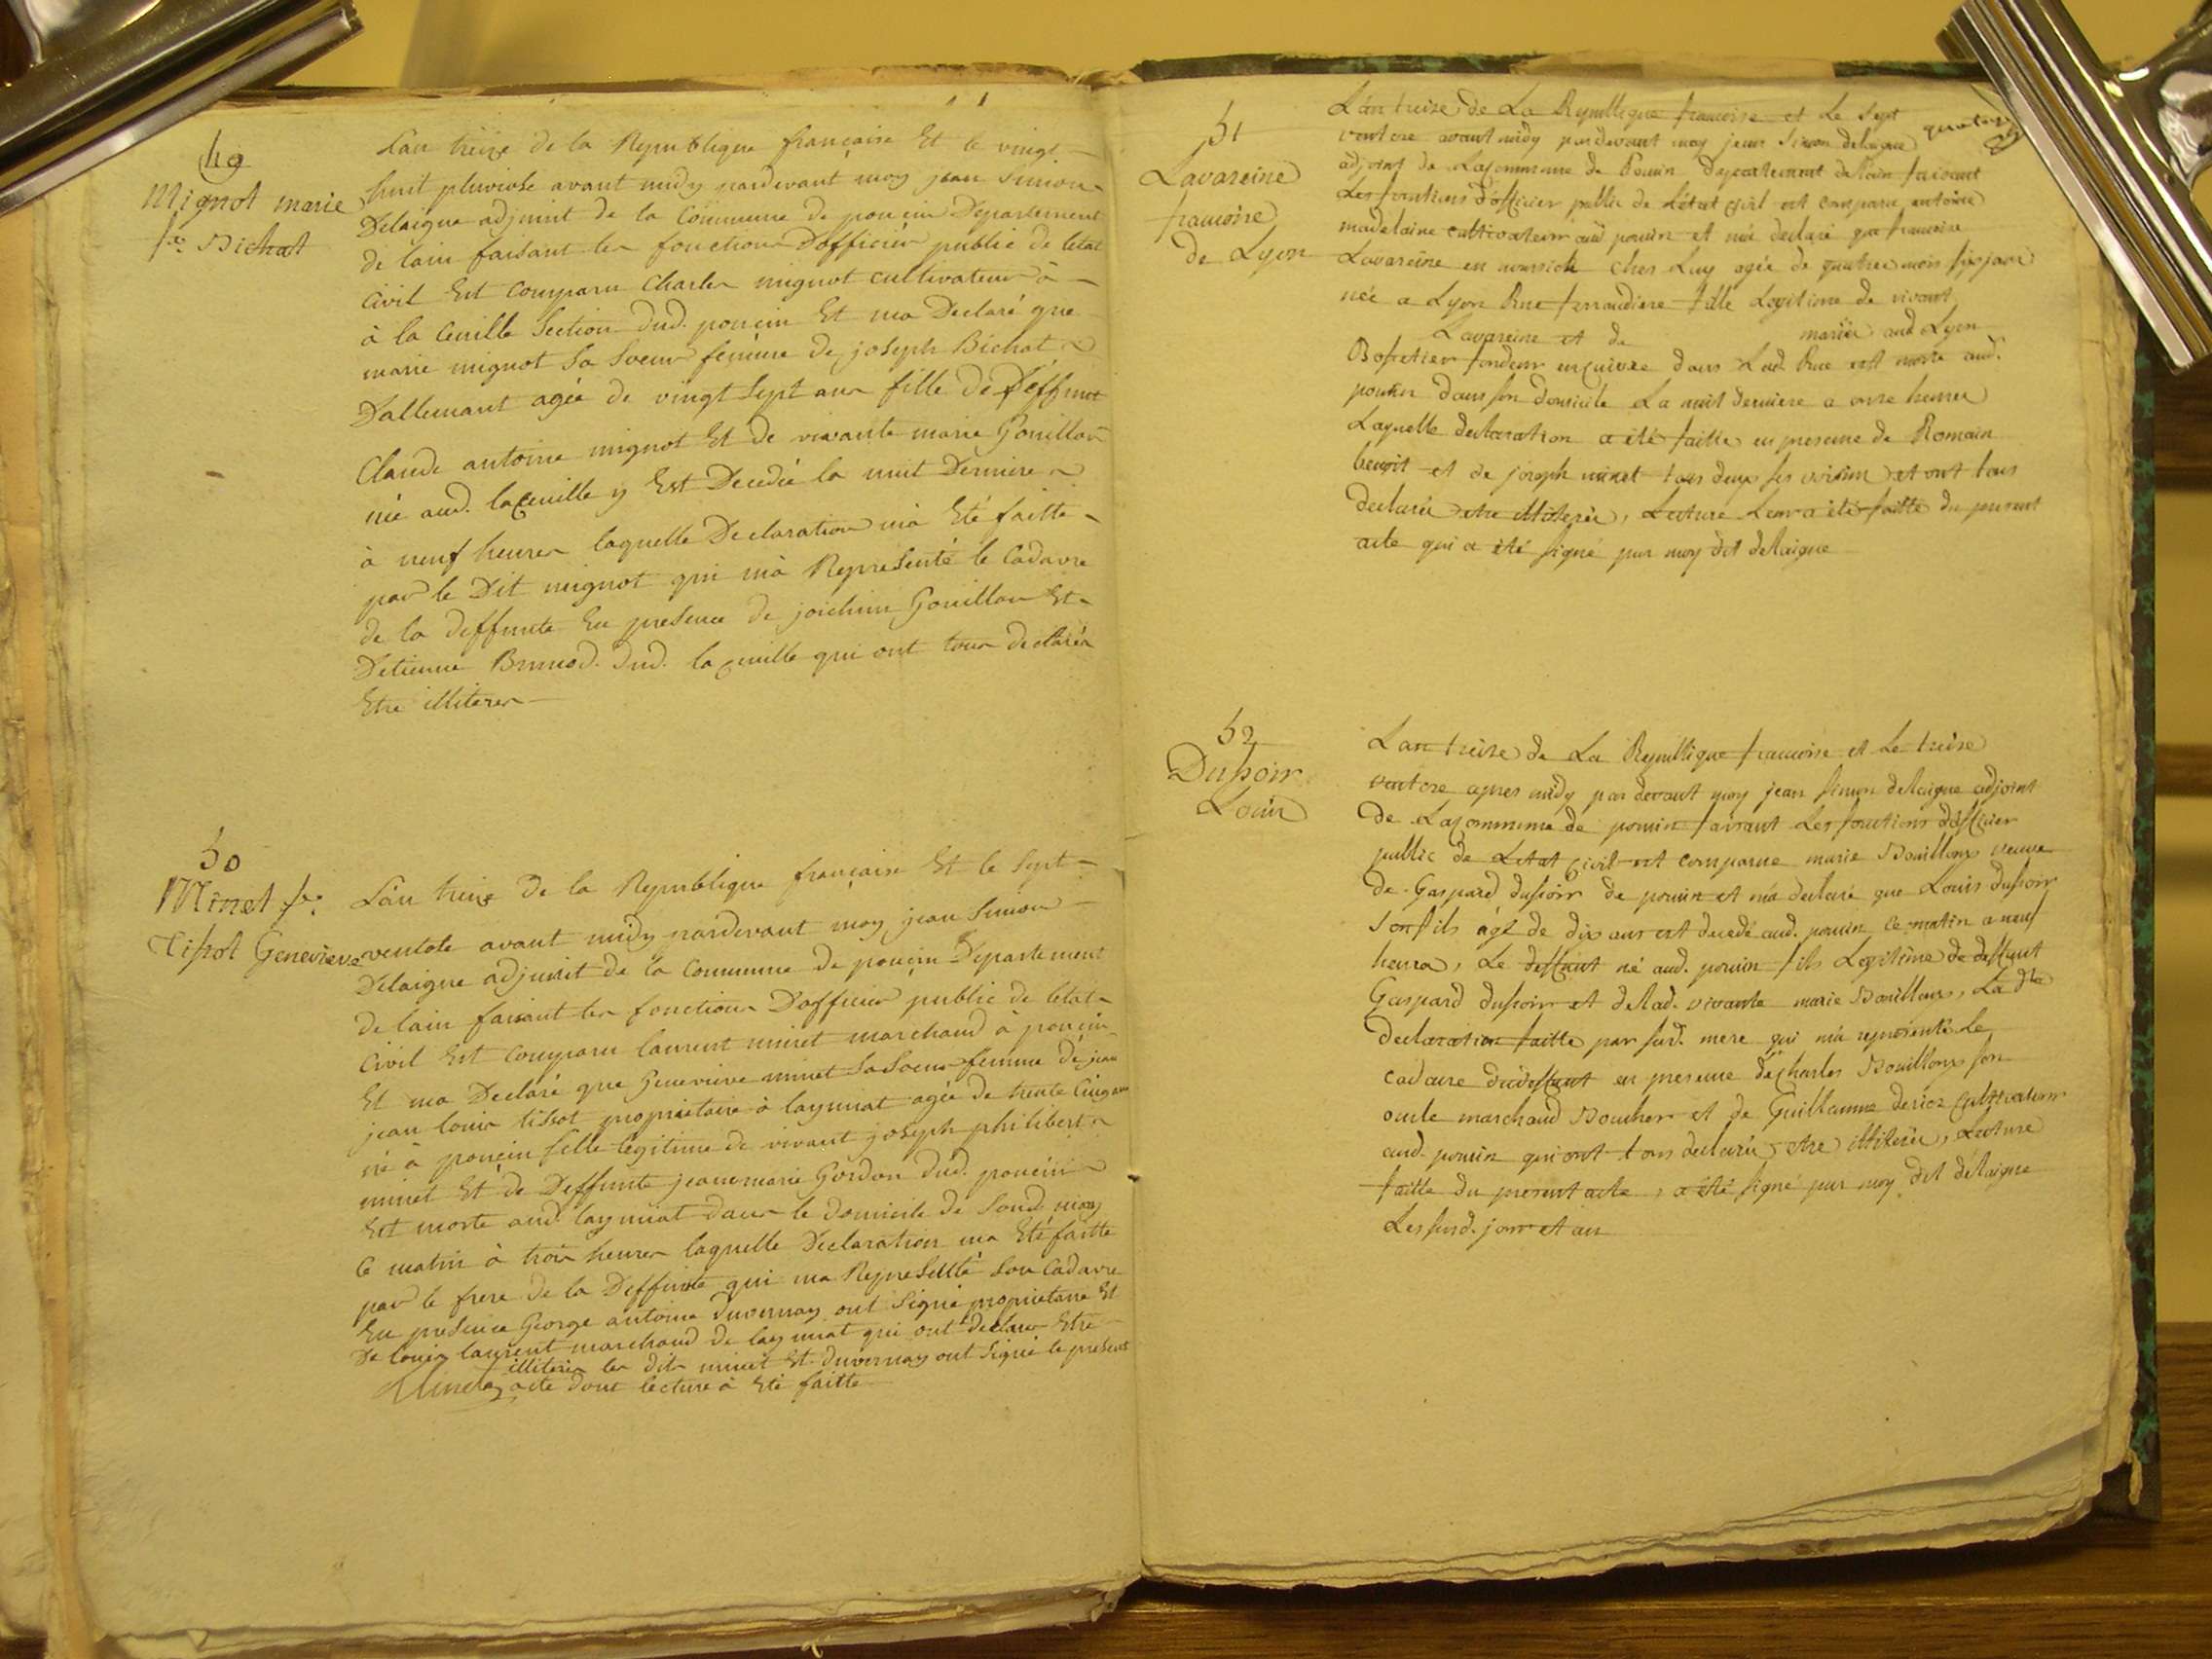 49
Mignot marie
fe. Bichat
L'an treize de la Republique française Et le vingt
huit pluviose avant midy pardevant moy jean Simon
Delaigue adjoint de la Commune de poncin Departement
de lain faisant les fonctions D'officier public de letat
Civil Est Comparu Charles mignot cultivateur à
à la Cueille Section dud. poncin Et ma Declaré que
marie mignot Sa Soeur femme de joseph Bichat
D'allemant agée de vingt Sept ans fille de Deffunt
Claude antoine mignot Et de vivante marie Gouillon
née aud. la Cueille y Est Decedée la nuit Derniere
à neuf heures laquelle Declaration m'a Eté faitte
par le Dit mignot qui m'a Representé le Cadavre
de la deffunte En presence de joichim Gouillon Et
D'etienne Brunod. dud. la Cueille qui ont tous declarés
Etre illiteres
50
Minet fe.
Tissot Genevieve
L'an treize de la Republique française Et le Sept
ventose avant midy pardevant moy jean Simon
Delaigue adjoint de la Commune de poncin Departement
de lain faisant les fonctions D'officier public de letat
Civil Est Comparu laurent minet marchand à poncin
Et ma Declaré que Genevieve minet Sa Soeur femme de jean
jean louis tissot proprietaire à leymiat agée de trente Cinq ans
né à poncin fille legitime de vivant joseph philibert
minet Et de Deffunte jeanne marie Gordon dud. poncin
Est morte aud. leymiat dans le domicile de Sond. mary
Ce matin à trois heures laquelle Declaration ma Eté faitte
par le frere de la Deffunte qui ma Representé Son Cadavre
En presence George antoine Duvernay ont Signé proprietaire Et
De louis laurent marchand de leymiat qui ont declarer Etre
illiteres les dits minet Et duvernay ont Signé le present
Minet acte dont lecture à Eté faitte
51
Lavareine
francoise
de Lyon
L'an treize de La Republique francoise et Le sept
ventose avant midy pardevant moy jean Simon delaigue
adjoint de La Commune de Poncin departement de l'ain faisant
Les fonctions d'officier public de L'état civil est comparu antoine
madelaine cultivateur aud poncin et m'a declaré que francoise
Lavareine en nourrice chez Luy agée de quatre mois six jours
née a Lyon Rue ferrandiere fille Legitime de vivant
Lavareine et de mariés aud Lyon
Bossetier fondeur en cuivre dans Lad. Rue est morte aud.
poncin dans son domicile La nuit derniere a onze heures
Laquelle declaration a été faitte en presence de Romain
benoit et de joseph minet tous deux ses voisins et ont tous
declarés etre illiterés, Lecture Leur a été faitte du present
acte qui a été signé par moy dit delaigue
52
Dussoir
Louis
L'an treize de La Republique francoise et Le treize
ventose apres midy par devant moy jean simon delaigue adjoint
de La commune de poncin faisant Les fonctions d'officier
public de Letat civil est comparue marie Bouillong veuve
de Gaspard dussoir de poncin et m'a declaré que Louis dussoir
Son fils agé de dix ans est decedé aud. poncin ce matin a neuf
heures, Le deffunt né aud. poncin fils Legitime de deffunt
Gaspard dussoir et de lad. vivante marie Bouillong, La dte
declaration faitte par sad. mere qui m'a representé le
cadavre du deffunt en presence de charles Bouillong son
oncle marchand Boucher et de Guillaume deriez cultivateur
aud. poncin qui ont tous declarés etre illiterés, Lecture
faitte du present acte, a été signé par moy dit delaigue
Les susd. jour et an